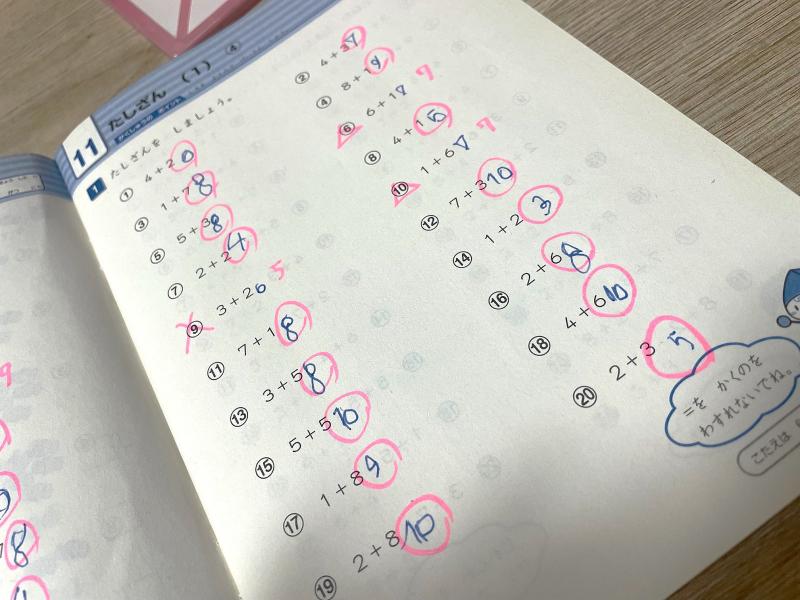 11 たしざん (1) ④
がくしゅうの ポイント
1 たしざんを しましょう。
① 4+2 6
② 4+3 7
③ 1+7 8
④ 8+1 9
⑤ 5+3 8
⑥ 6+1 8 7
⑦ 2+2 4
⑧ 4+1 5
⑨ 3+2 6 5
⑩ 1+6 7 7
⑪ 7+1 8
⑫ 7+3 10
⑬ 3+5 8
⑭ 1+2 3
⑮ 5+5 10
⑯ 2+6 8
⑰ 1+8 9
⑱ 4+6 10
⑲ 2+8 10
⑳ 2+3 5
=を かくのを
わすれないでね。
こたえは
9
8